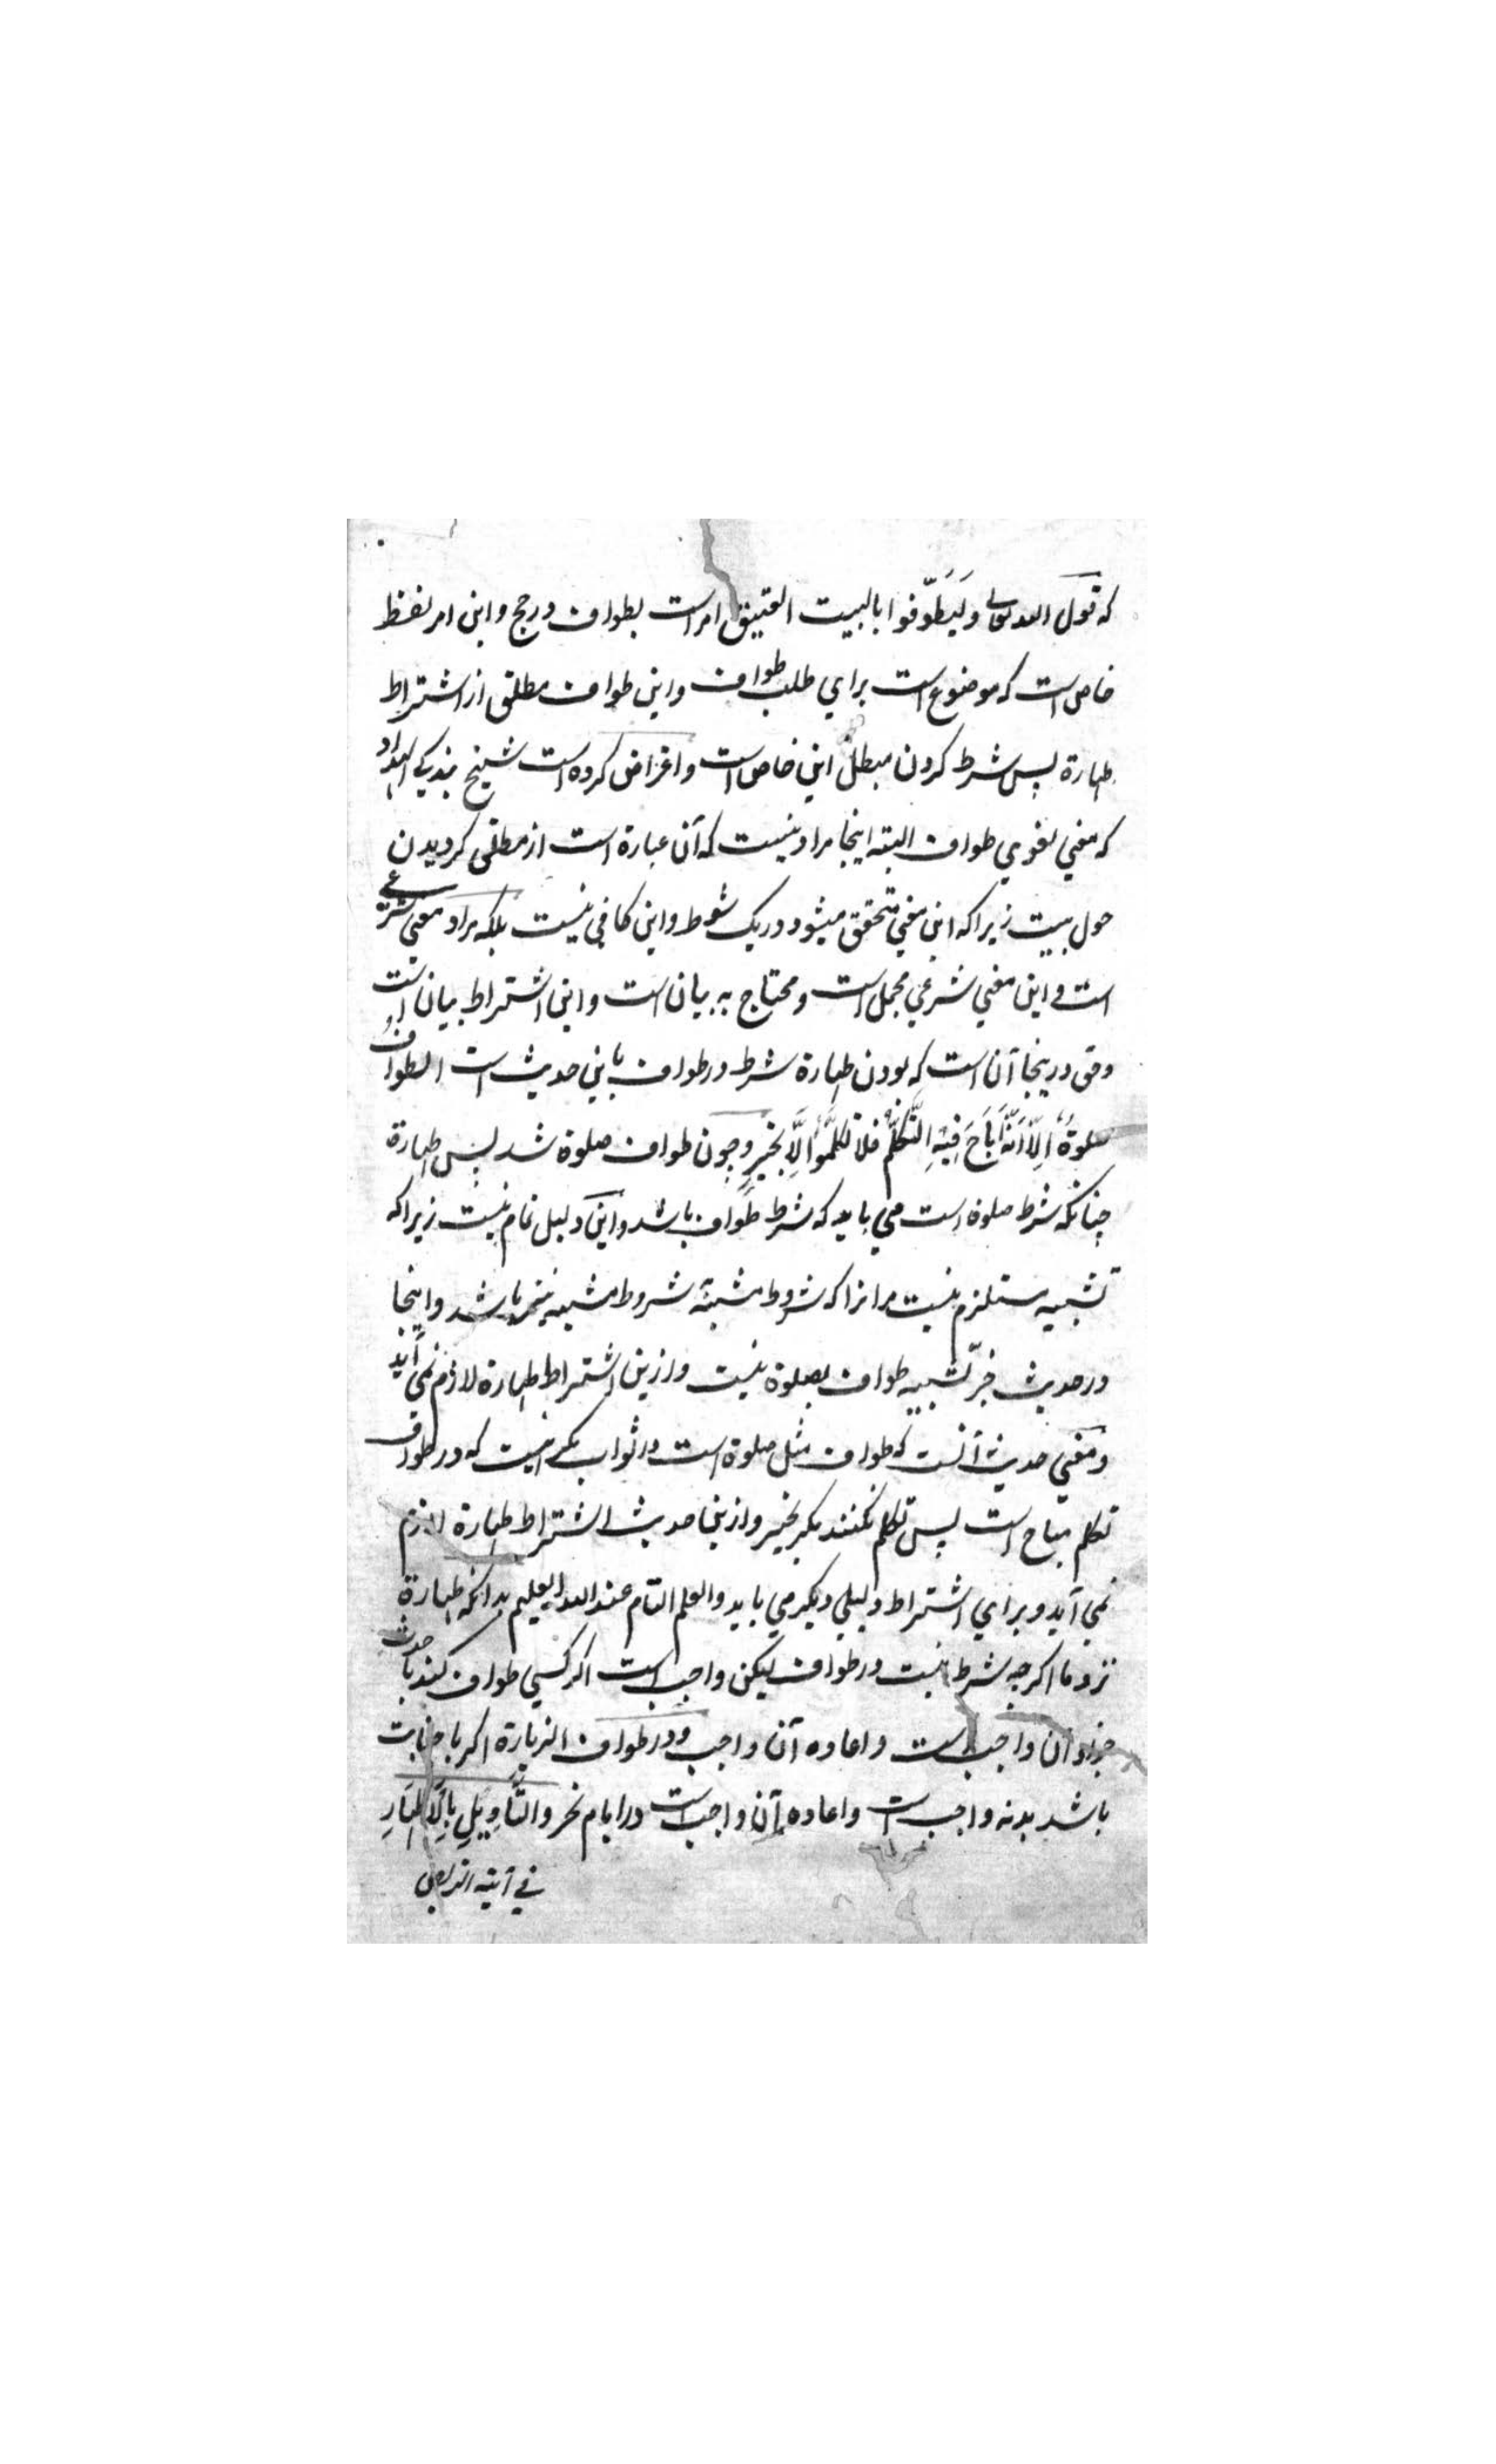 که قول الله تعالی وَلْیَطَّوَّفُوا بالبیت العتیق امر است بطواف در حج و این امر لفظ
خاص است که موضوع است برای طلب طواف و این طواف مطلق از اشتراط
طهارة پس شرط کردن مبطل این خاص است و اعتراض کرده است شیخ بندیکی الهداد
که معنی لغوی طواف البته اینجا مراد نیست که آن عبارة است از مطلق کردیدن
حول بیت زیراکه این معنی متحقق میشود در یک شوط و این کافی نیست بلکه مراد معنی شرعی
است و این معنی شرعی مجمل است و محتاج به بیان است و این اشتراط بیان است
وقی درینجا آن است که بودن طهارة شرط در طواف باین حدیث است الطواف
صلوة اِلّا اَنّه اَبَاحَ فِیْهِ التَّکَلُّم فلا تکلموا اِلَّا بخیرٍ و چون طواف صلوة شد پس طهارة
چنانکه شرط صلوة است می باید که شرط طواف باشد و این دلیل تمام نیست زیراکه
تشبیه مستلزم نیست مر انرا که شروط مشبّه شروط مشبه به باشد و اینجا
در حدیث جز تشبیه طواف بصلوة نیست و ازین اشتراط طهارة لازم نمی آید
و معنی حدیث آنست که طواف مثل صلوة است در ثواب مکر اینست که در طواف
تکلم مباح است پس تکلم نکنند مکر بخیر و ازین حدیث اشتراط طهارة لازم
نمی آید و برای اشتراط دلیلی دیکر می باید و العلم التام عند الله العلیم بدانکه طهارة
نزد ما اکرچه شرط نیست در طواف لیکن واجب است اکر کسی طواف کند با حدث
جزاء آن واجب است و اعاده آن واجب و در طواف الزیارة اکر با جنابت
باشد بدنه واجب است و اعاده آن واجب است در ایام نحر وَالتَّاوِیْلِ بِالْاَطْهَارِ
فی آیة التربص